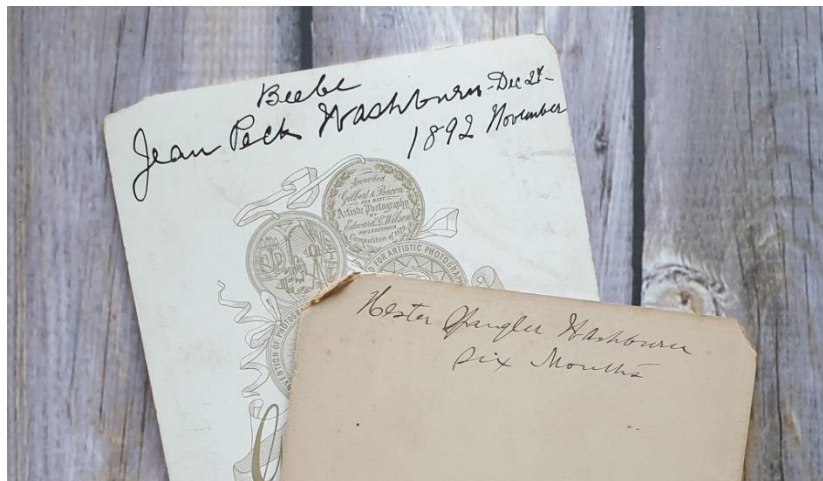 Beebe
Jean Peck Washburn - Dec 24 -
1892 November
Awarded
Gilbert & Bacon
FOR BEST
Artistic Photography
BY
Edward L. Wilson
PHILADELPHIA
Competition of
FOR ARTISTIC PHOTOGRAPH
NVENTION OF PHOTOG
Hester Spangler Washburn
Six Months